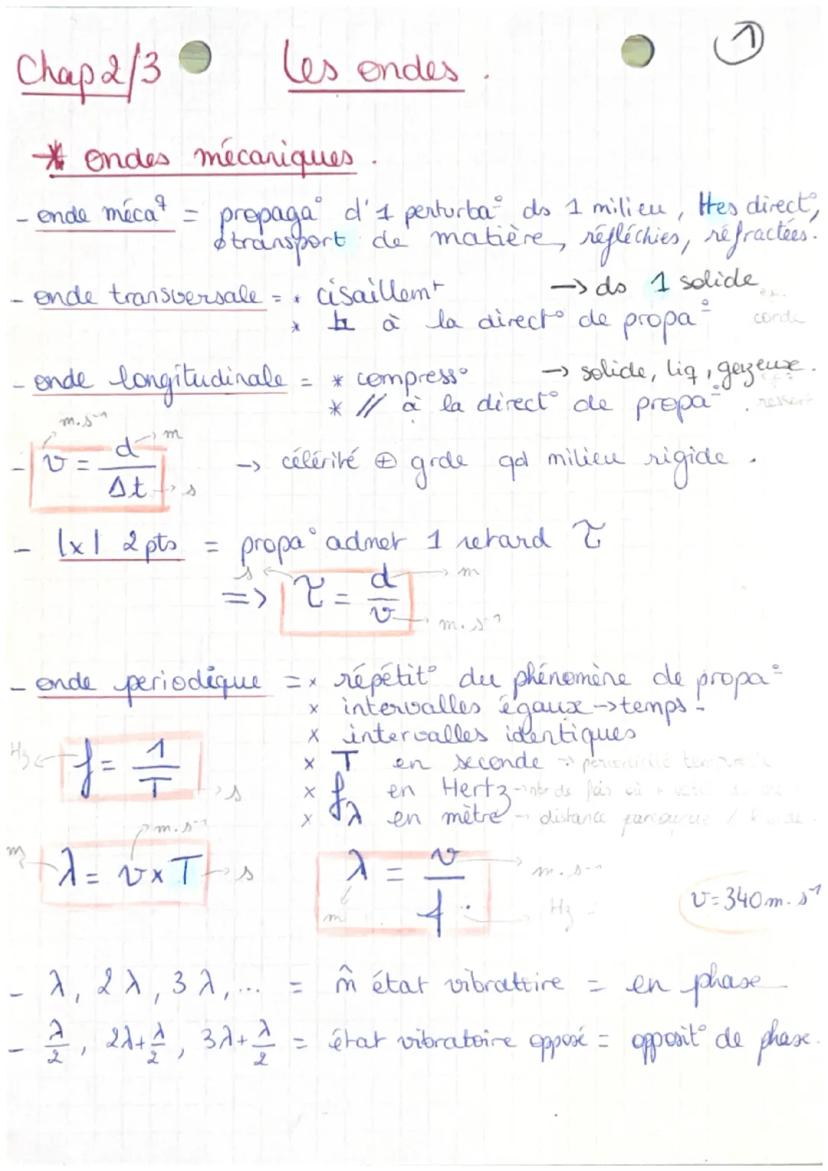 1
Chap 2/3 Les ondes.
* ondes mécaniques.
- onde méca^q = propaga° d'1 perturba° ds 1 milieu, ttes direct°,
∅ transport de matière, réfléchies, réfractées.
- onde transversale = * cisaillemt → ds 1 solide
* ⊥ à la direct° de propa° corde
- onde longitudinale = * compress° → solide, liq, gazeuse.
* // à la direct° de propa°. ressort
m.s⁻¹ m
- v = d/Δt → célérité ⊕ grde qd milieu rigide.
s
- |x| 2 pts = propa° admet 1 retard τ
s m
=> τ = d/v
m.s⁻¹
- onde periodique = x répétit° du phénomène de propa°
x intervalles égaux → temps -
x intervalles identiques
Hz f = 1/T s
x T en seconde → périodicité
x f en Hertz - nb de fois où
x λ en mètre - distance parcourue /
m.s⁻¹
m λ = v x T s
λ = v/f m.s⁻¹
m Hz
v = 340 m.s⁻¹
- λ, 2λ, 3λ, ... = m̂ état vibrattire = en phase
- λ/2, 2λ+λ/2, 3λ+λ/2 = état vibratoire opposé = opposit° de phase.